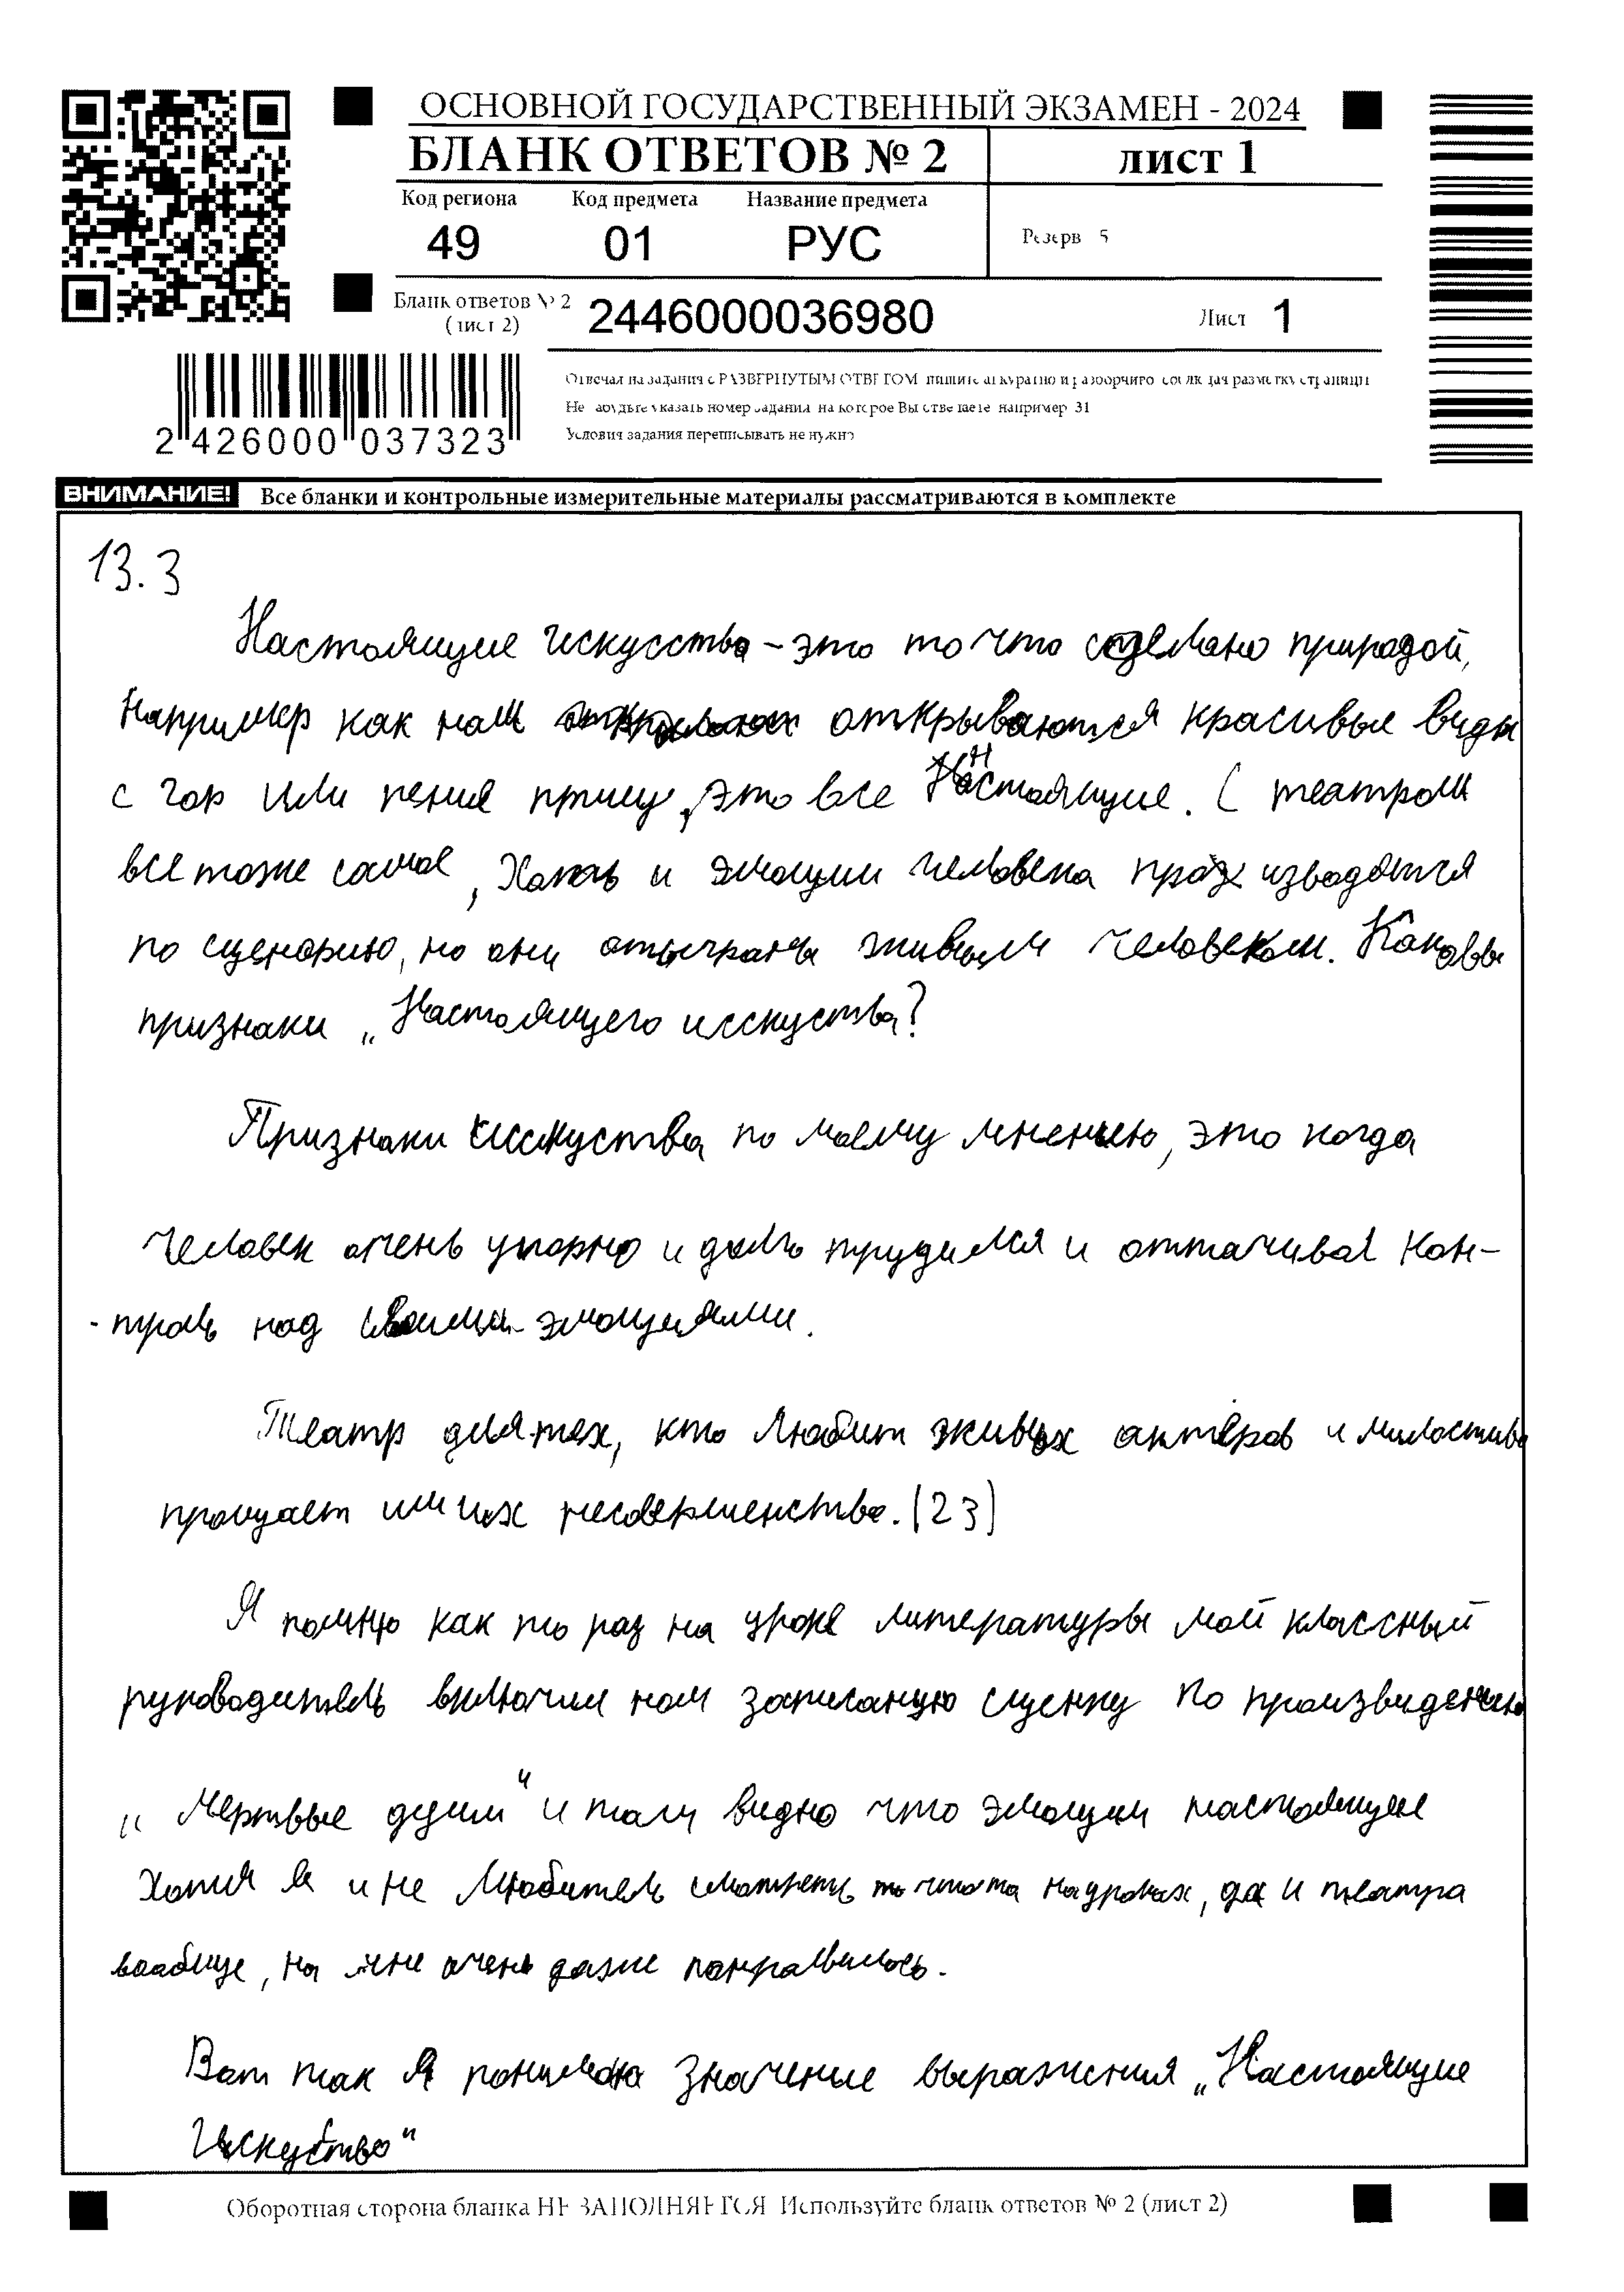 ОСНОВНОЙ ГОСУДАРСТВЕННЫЙ ЭКЗАМЕН - 2024
БЛАНК ОТВЕТОВ № 2
лист 1
Код региона Код предмета Название предмета
49 01 РУС
Резерв 5
Бланк ответов № 2
(лист 2)
2446000036980
Лист 1
2 426000 037323
Отвечая на задания с РАЗВЕРНУТЫМ ОТВЕТОМ пишите аккуратно и разборчиво соблюдая разметку страницы
Не забудьте указать номер задания на которое Вы отвечаете например 31
Условия задания переписывать не нужно
ВНИМАНИЕ! Все бланки и контрольные измерительные материалы рассматриваются в комплекте
13.3
Настоящие искусство – это то что сделано природой,
например как нам открываются красивые виды
с гор или пения птиц, это все Настоящие. С театром
все тоже самое, Хоть и эмоции человека производятся
по сценарию, но они отыграны живым человеком. Каковы
признаки „Настоящего исскуства?
Признаки исскуства по моему мнению, это когда
человек очень упорно и долго трудился и оттачивал кон-
- троль над своими эмоциями.
Театр для тех, кто любит живых актёров и милостиво
прощает им их несовершенство. (23)
Я помню как то раз на уроке литературы мой классный
руководитель включил нам записаную сценку по произвидению
„Мертвые души" и там видно что эмоции настоящие
Хотя я и не любитель смотреть то что то на уроках, да и театра
вообще, но мне очень даже понравилось.
Вот так я понимаю значение выражения „Настоящие
Искуство"
Оборотная сторона бланка НЕ ЗАПОЛНЯЕТСЯ Используйте бланк ответов № 2 (лист 2)